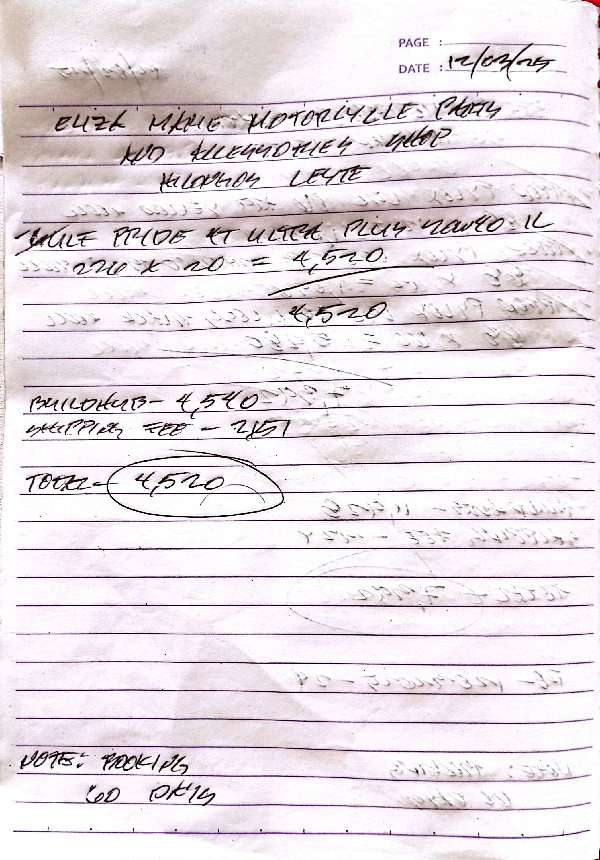 PAGE :
DATE : 12/03/25
ELIZA MAME MOTORCYCLE PARTS
AND ACCESSORIES SHOP
HILONGOS LEYTE
PRIDE 4T ULTRA PLUS 20W40 1L
226 X 20 = 4,520
4,520
BUILDHUB - 4,540
SHIPPING FEE -
TOTAL - 4,520
NOTE: BOOKING
60 DAYS